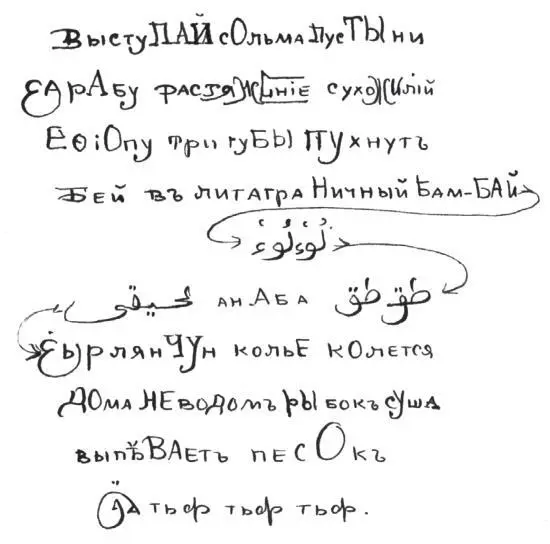 ВыстуПАЙ сОльма ПусТЫни
ЕАрАбу растяЖЕНIЕ сухоЖилiй
ЕѳiОпу три гуБЫ ПУхнутъ
Бей въ литаграНичный Бам-БАЙ
لُؤلُوءُ
анАба طق طق
ЁырлянЧУн кольЕ колется
ДОма НЕводомъ рЫбокъ сУша
выпѢВАЕтъ пЕсОкъ
тьфр тьфр тьфр.